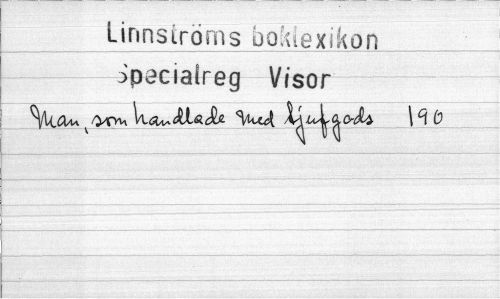 Linnströms boklexikon
Specialreg Visor
Man, som handlade med tjufgods 190